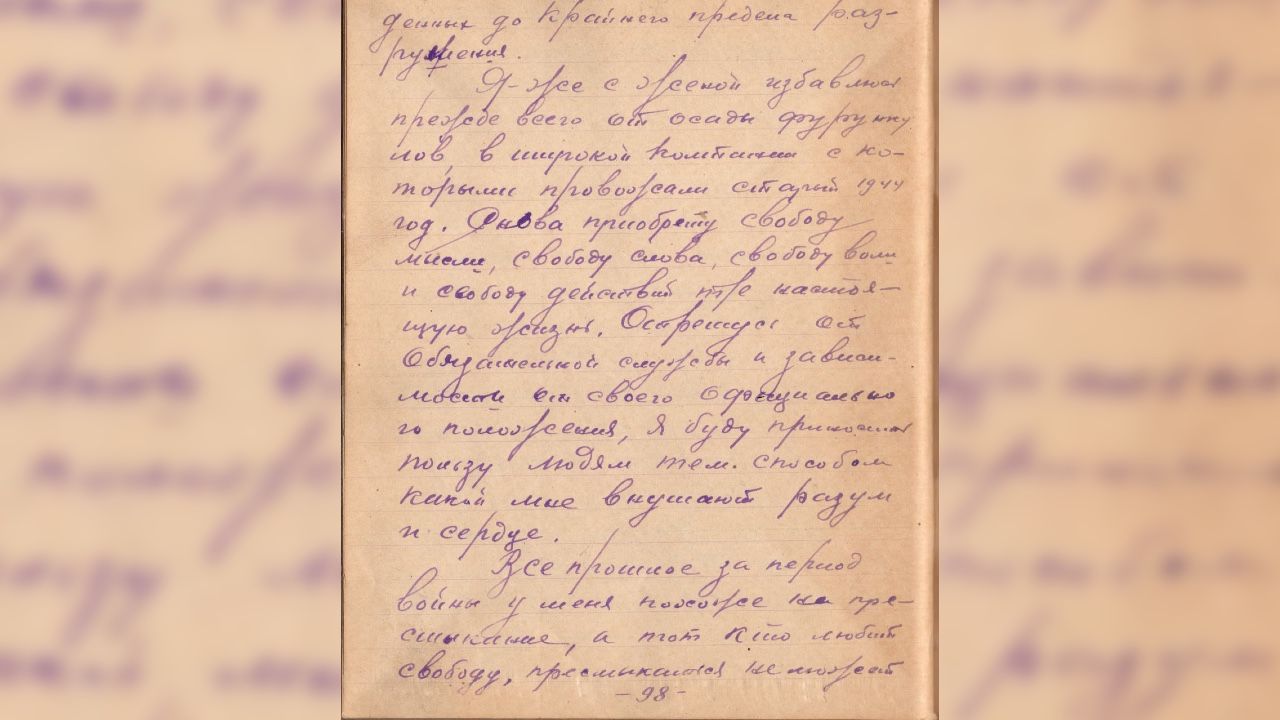 денных до крайнего предела раз-
рушения.
Я-же с женой избавлюсь
прежде всего от осады фурунку
лов, в широкой компании с ко-
торыми провожали старый 1944
год. Снова приобрету свободу
мысли, свободу слова, свободу воли
и свободу действий
щую жизнь. Острешусь от
обязательной службы и зависи-
мости от своего официально
го положения, я буду приносить
пользу людям тем. способом
какой мне внушают разум
и сердце.
Все прошлое за период
войны у меня похоже на пре-
смыкание, а тот кто любит
свободу, пресмыкатся не может
-98-